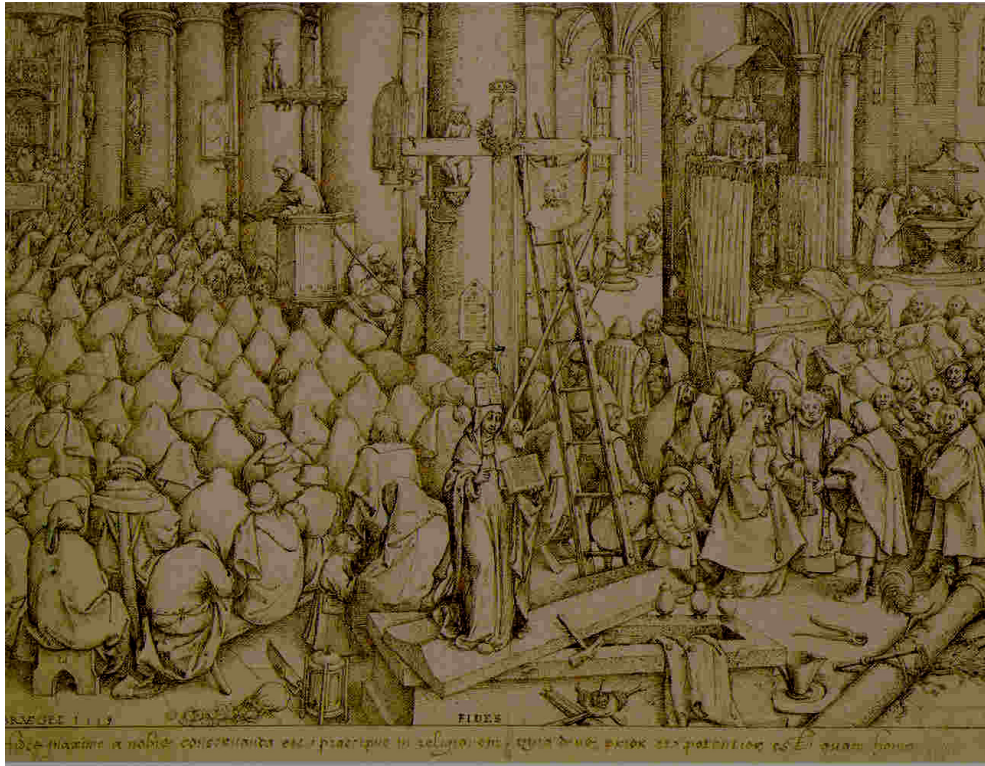 BRVEGEL 1559 FIDES
fides maxime a nobis conseruanda est praecipue in religionem, quia deus prior et potentior est quam homo